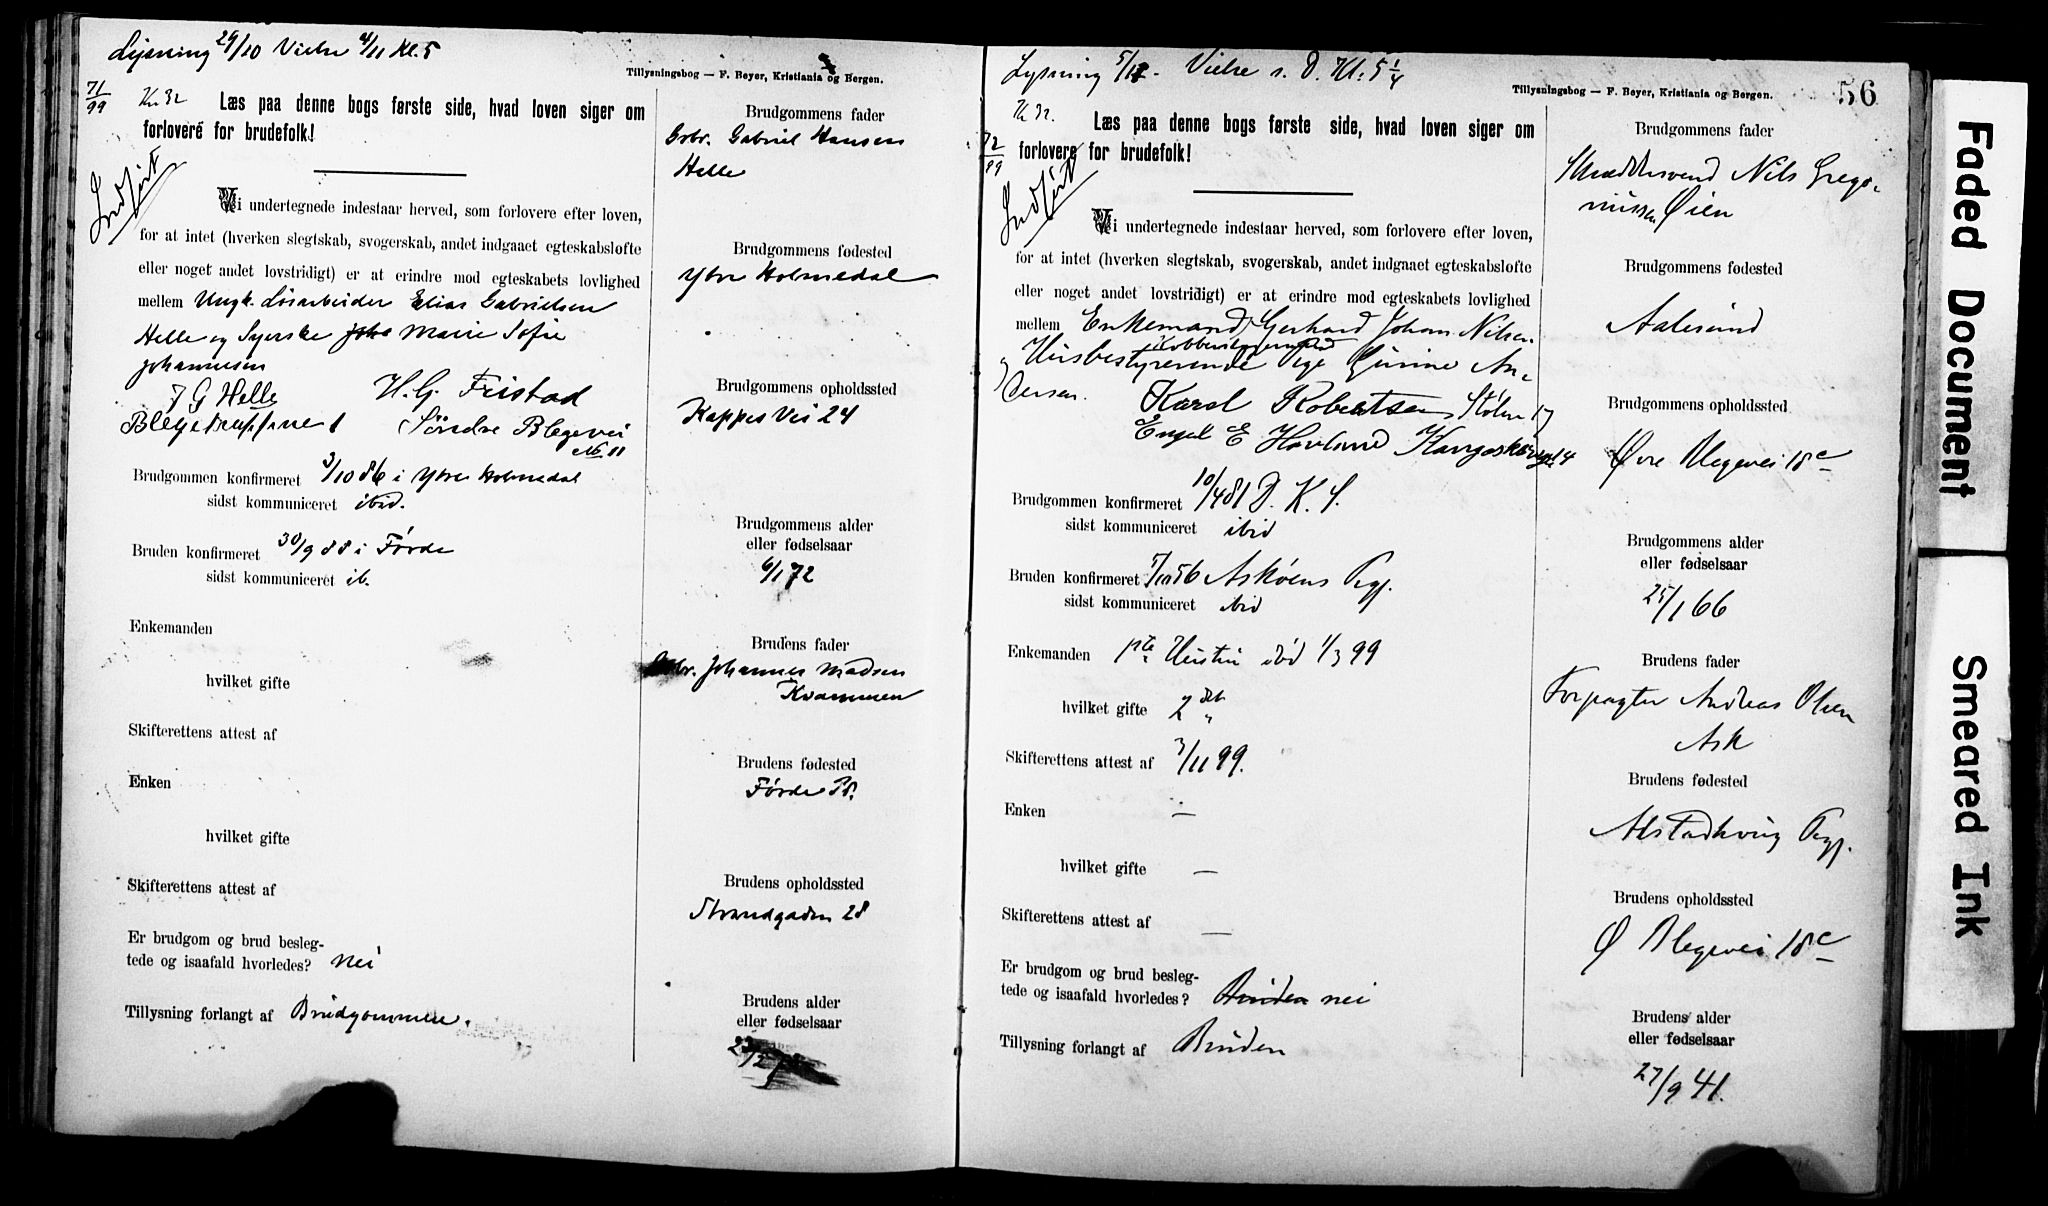 Lysning 29/10 Vielse 4/11 Kl. 5
Tillysningsbog — F. Beyer, Kristiania og Bergen.
71/99
Kr 32
Læs paa denne bogs første side, hvad loven siger om
forlovere for brudefolk!
Indført
Vi undertegnede indestaar herved, som forlovere efter loven,
for at intet (hverken slegtskab, svogerskab, andet indgaaet egteskabsløfte
eller noget andet lovstridigt) er at erindre mod egteskabets lovlighed
mellem Ungk. Løsarbeider Elias Gabrielsen
Helle og Syerske Marie Sofie
Johannesen
J G Helle H. G. Fristad
Søndre Blegevei
No 11
Brudgommen konfirmeret 3/10 86 i Ytre Holmedal
sidst kommuniceret ibid.
Bruden konfirmeret 30/9 88 i Førde
sidst kommuniceret ib.
Enkemanden
hvilket gifte
Skifterettens attest af
Enken
hvilket gifte
Skifterettens attest af
Er brudgom og brud besleg-
tede og isaafald hvorledes? nei
Tillysning forlangt af Brudgommen.
Brudgommens fader
Gbr. Gabriel Hansen
Helle
Brudgommens fødested
Ytre Holmedal
Brudgommens opholdssted
Kappes Vei 24
Brudgommens alder
eller fødselsaar
6/1 72
Brudens fader
Johannes Madsen
Kvammen
Brudens fødested
Førde Pr.
Brudens opholdssted
Strandgaden 28
Brudens alder
eller fødselsaar
Lysning 5/11. Vielse s. D. Kl. 5 1/4
Tillysningsbog — F. Beyer, Kristiania og Bergen.
56
Kr 32.
72/99
Læs paa denne bogs første side, hvad loven siger om
forlovere for brudefolk!
Indført
Vi undertegnede indestaar herved, som forlovere efter loven,
for at intet (hverken slegtskab, svogerskab, andet indgaaet egteskabsløfte
eller noget andet lovstridigt) er at erindre mod egteskabets lovlighed
mellem Enkemand Gerhard Johan Nilsen
og Husbestyrerinde Pige Gurine An-
dersen.
Karl Robertsen Stølen 17
Engel E Hovland
Brudgommen konfirmeret 10/4 81 D. K. S.
sidst kommuniceret ibid
Bruden konfirmeret 5/10 56 Askøens Pgj.
sidst kommuniceret ibid
Enkemanden Hustru død 1/3 99
hvilket gifte 2det
Skifterettens attest af 3/11 99.
Enken —
hvilket gifte —
Skifterettens attest af —
Er brudgom og brud besleg-
tede og isaafald hvorledes? Bruden nei
Tillysning forlangt af Bruden
Brudgommens fader
Skræddersvend Nils Grego-
riussen Øien
Brudgommens fødested
Aalesund
Brudgommens opholdssted
Øvre Blegevei 18c
Brudgommens alder
eller fødselsaar
25/1 66
Brudens fader
Forpagter Andreas Olsen
Ask
Brudens fødested
Alstadhoug Pgj.
Brudens opholdssted
Ø Blegevei 18c
Brudens alder
eller fødselsaar
27/9 41.
Faded Document
Smeared Ink